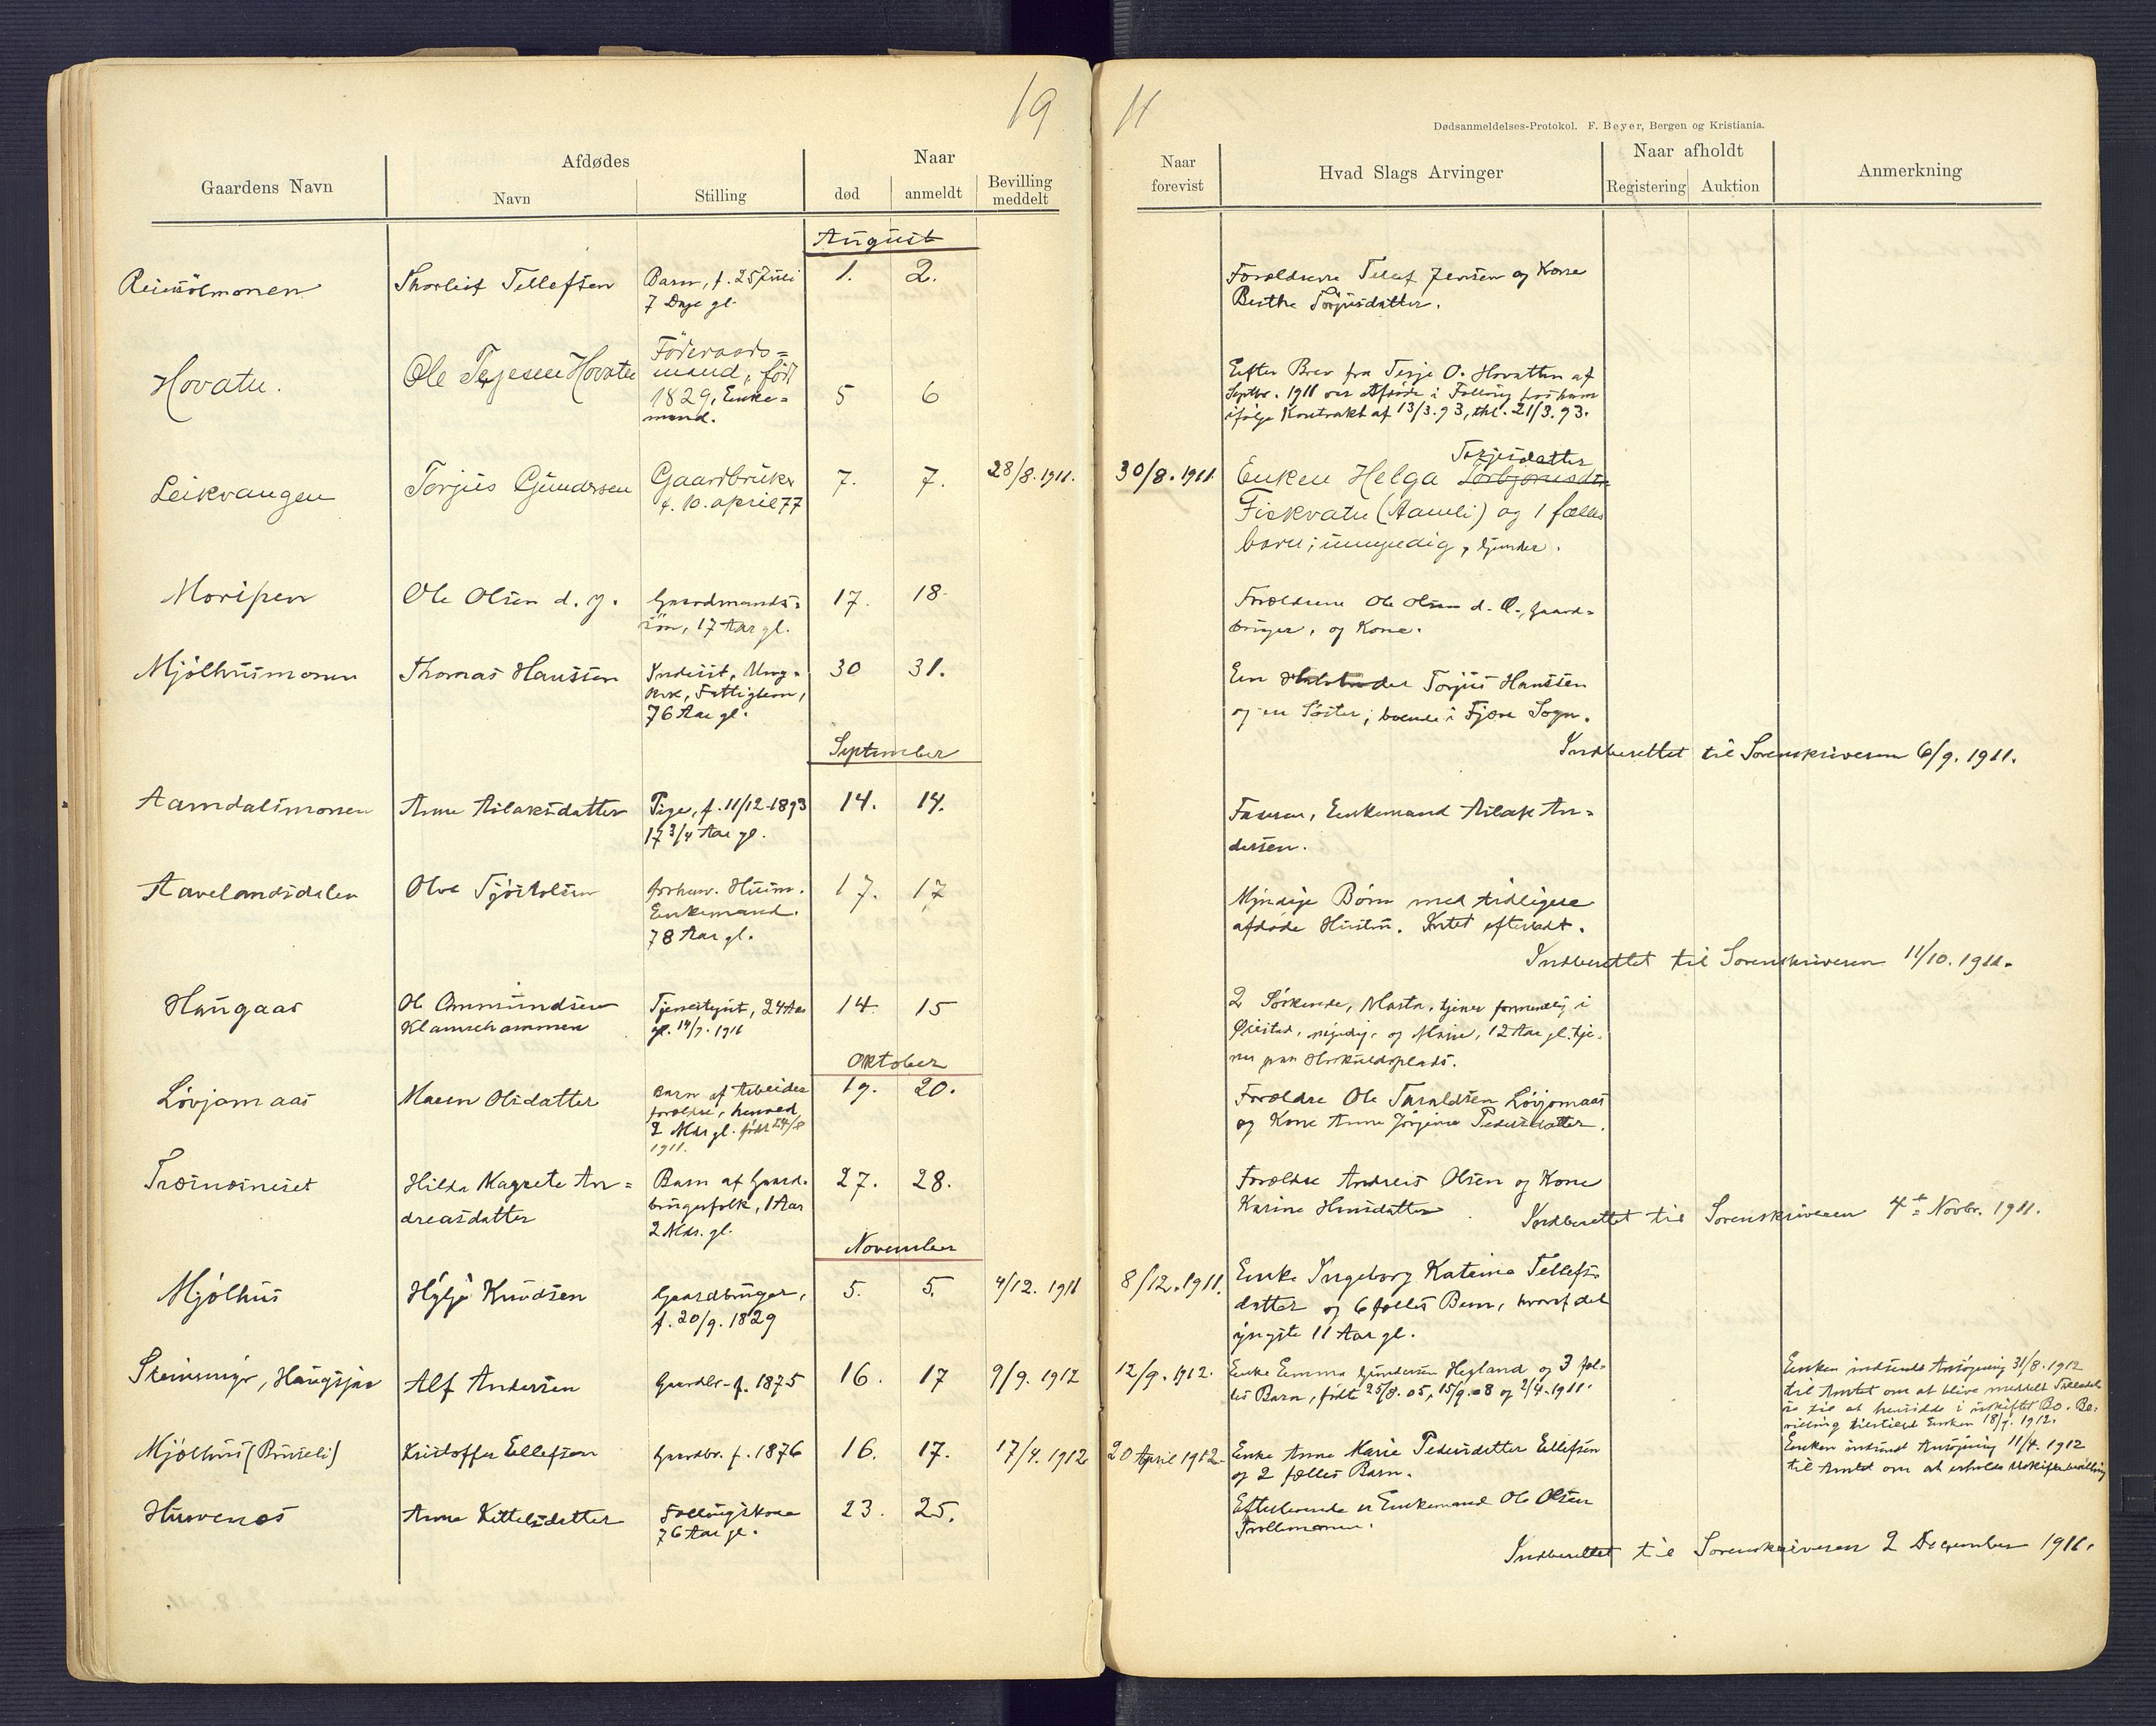 19
11
Dødsanmeldelses-Protokol. F. Beyer, Bergen og Kristiania.
Gaardens Navn
Afdødes
Navn
Stilling
Naar
død
anmeldt
Bevilling meddelt
Naar forevist
Hvad Slags Arvinger
Naar afholdt
Registering
Auktion
Anmerkning
August
Thorleif Tellefsen
Barn, f. 25 Juli
7 Dage gl.
1.
2.
Forældrene Tellef Jensen og Kone
Berthe Torjusdatter.
Hovatn.
Ole Terjesen Hovatn
Föderaads=
mand, født
1829, Enke=
mand.
5
6
Efter Brev fra Terje O. Hovatten af
Septbr. 1911 var Afdøde i Follöug hos ham
ifølge Kontrakt af 13/3.93, thl. 21/3.93.
Leikvangen
Torjus Gundersen
Gaardbruker
f. 10. april 77
7.
7.
28/8.1911.
30/8.1911
Terjesdatter
Enken Helga Torbjørnsdtr
Fiskvatn (Aamli) og 1 fælles
barn; umyndig, Gunder.
Moripen
Ole Olsen d. y.
Gaardmands=
søn, 17 Aar gl.
17.
18.
Forældrene Ole Olsen d. Æ., Gaard=
bruger, og Kone.
Mjölhusmonen
Thomas Hanssen
Inderst, Ung=
karl, Fattiglem,
76 Aar gl.
30
31.
En Halvbroder Torjus Hanssen
og en Søster, boende i Fjære Sogn.
Indberettet til Sorenskriveren 6/9. 1911.
September
Aamdalsmonen
Anne Aslaksdatter
Pige, f. 11/12-1893
17 3/4 Aar gl.
14.
14.
Faderen, Enkemand Aslak An=
dersen.
Aavelandsdalen
Olve Tjöstolsen
forhenv. Husm.
Enkemand.
78 Aar gl.
17.
17
Myndige Børn med tidligere
afdøde Hustru. Intet efterladt.
Indberettet til Sorenskriveren 11/10. 1911.
Haugaas
Ole Ommundsen
Tjenestegut, 24 Aar
gl. 14/9. 1911
14
15
2 Söskende, Marta, tjener formentlig i
Øiestad, myndig, og Marie, 12 Aar gl. tje=
ner paa Hoskuldsplads.
Oktober
Lövjomaas
Maren Olsdatter
Barn af Arbeider
forældre, henved
2 Mdr gl. født 24/8
1911.
19.
20.
Forældre Ole Taraldsen Lövjomaas
og Kone Anne Jörgine Pedersdatter.
Træisneset
Hilda Magrete An=
dreasdatter
Barn af Gaard=
brugerfolk, 1 Aar
2 Mdr. gl.
27.
28.
Forældre Andreas Olsen og Kone
Karine Hansdatter
Indberettet til Sorenskriveren 4de Novbr. 1911.
November
Mjölhus
Knudsen
Gaardbruger,
f. 20/9. 1829
5.
5.
4/12. 1911
8/12.1911.
Enke Ingeborg Katrine Tellefs=
datter og 6 fælles Børn, hvoraf det
yngste 11 Aar gl.
Alf Andersen
Gaardbr. f. 1875
16.
17
9/9. 1912
12/9.1912.
Enke Emma Gundersen Hegland og 3 fæl=
les Barn, født 25/8.05, 15/9.08 og 2/4.1911.
Enken indsendt Ansøgning 31/8.1912
til Amtet om at blive meddelt Tilladel=
se til at hensidde i uskiftet Bo. Be=
villing tilstillet Enken 18/9. 1912.
Mjölhus (Bruseli)
Kristoffer Ellefsen
Gaardbr. f. 1876
16.
17.
17/4. 1912
20 April 1912
Enke Anne Marie Pedersdatter Ellefsen
og 2 fælles Barn.
Enken indsendt Ansøgning 11/4. 1912
til Amtet om at erholde Uskiftebevilling
Anne Kittelsdatter
76 Aar gl.
23.
25.
Efterlevende er Enkemand Ole Olsen
Trollmonen.
Indberettet til Sorenskriveren 2 December 1911.